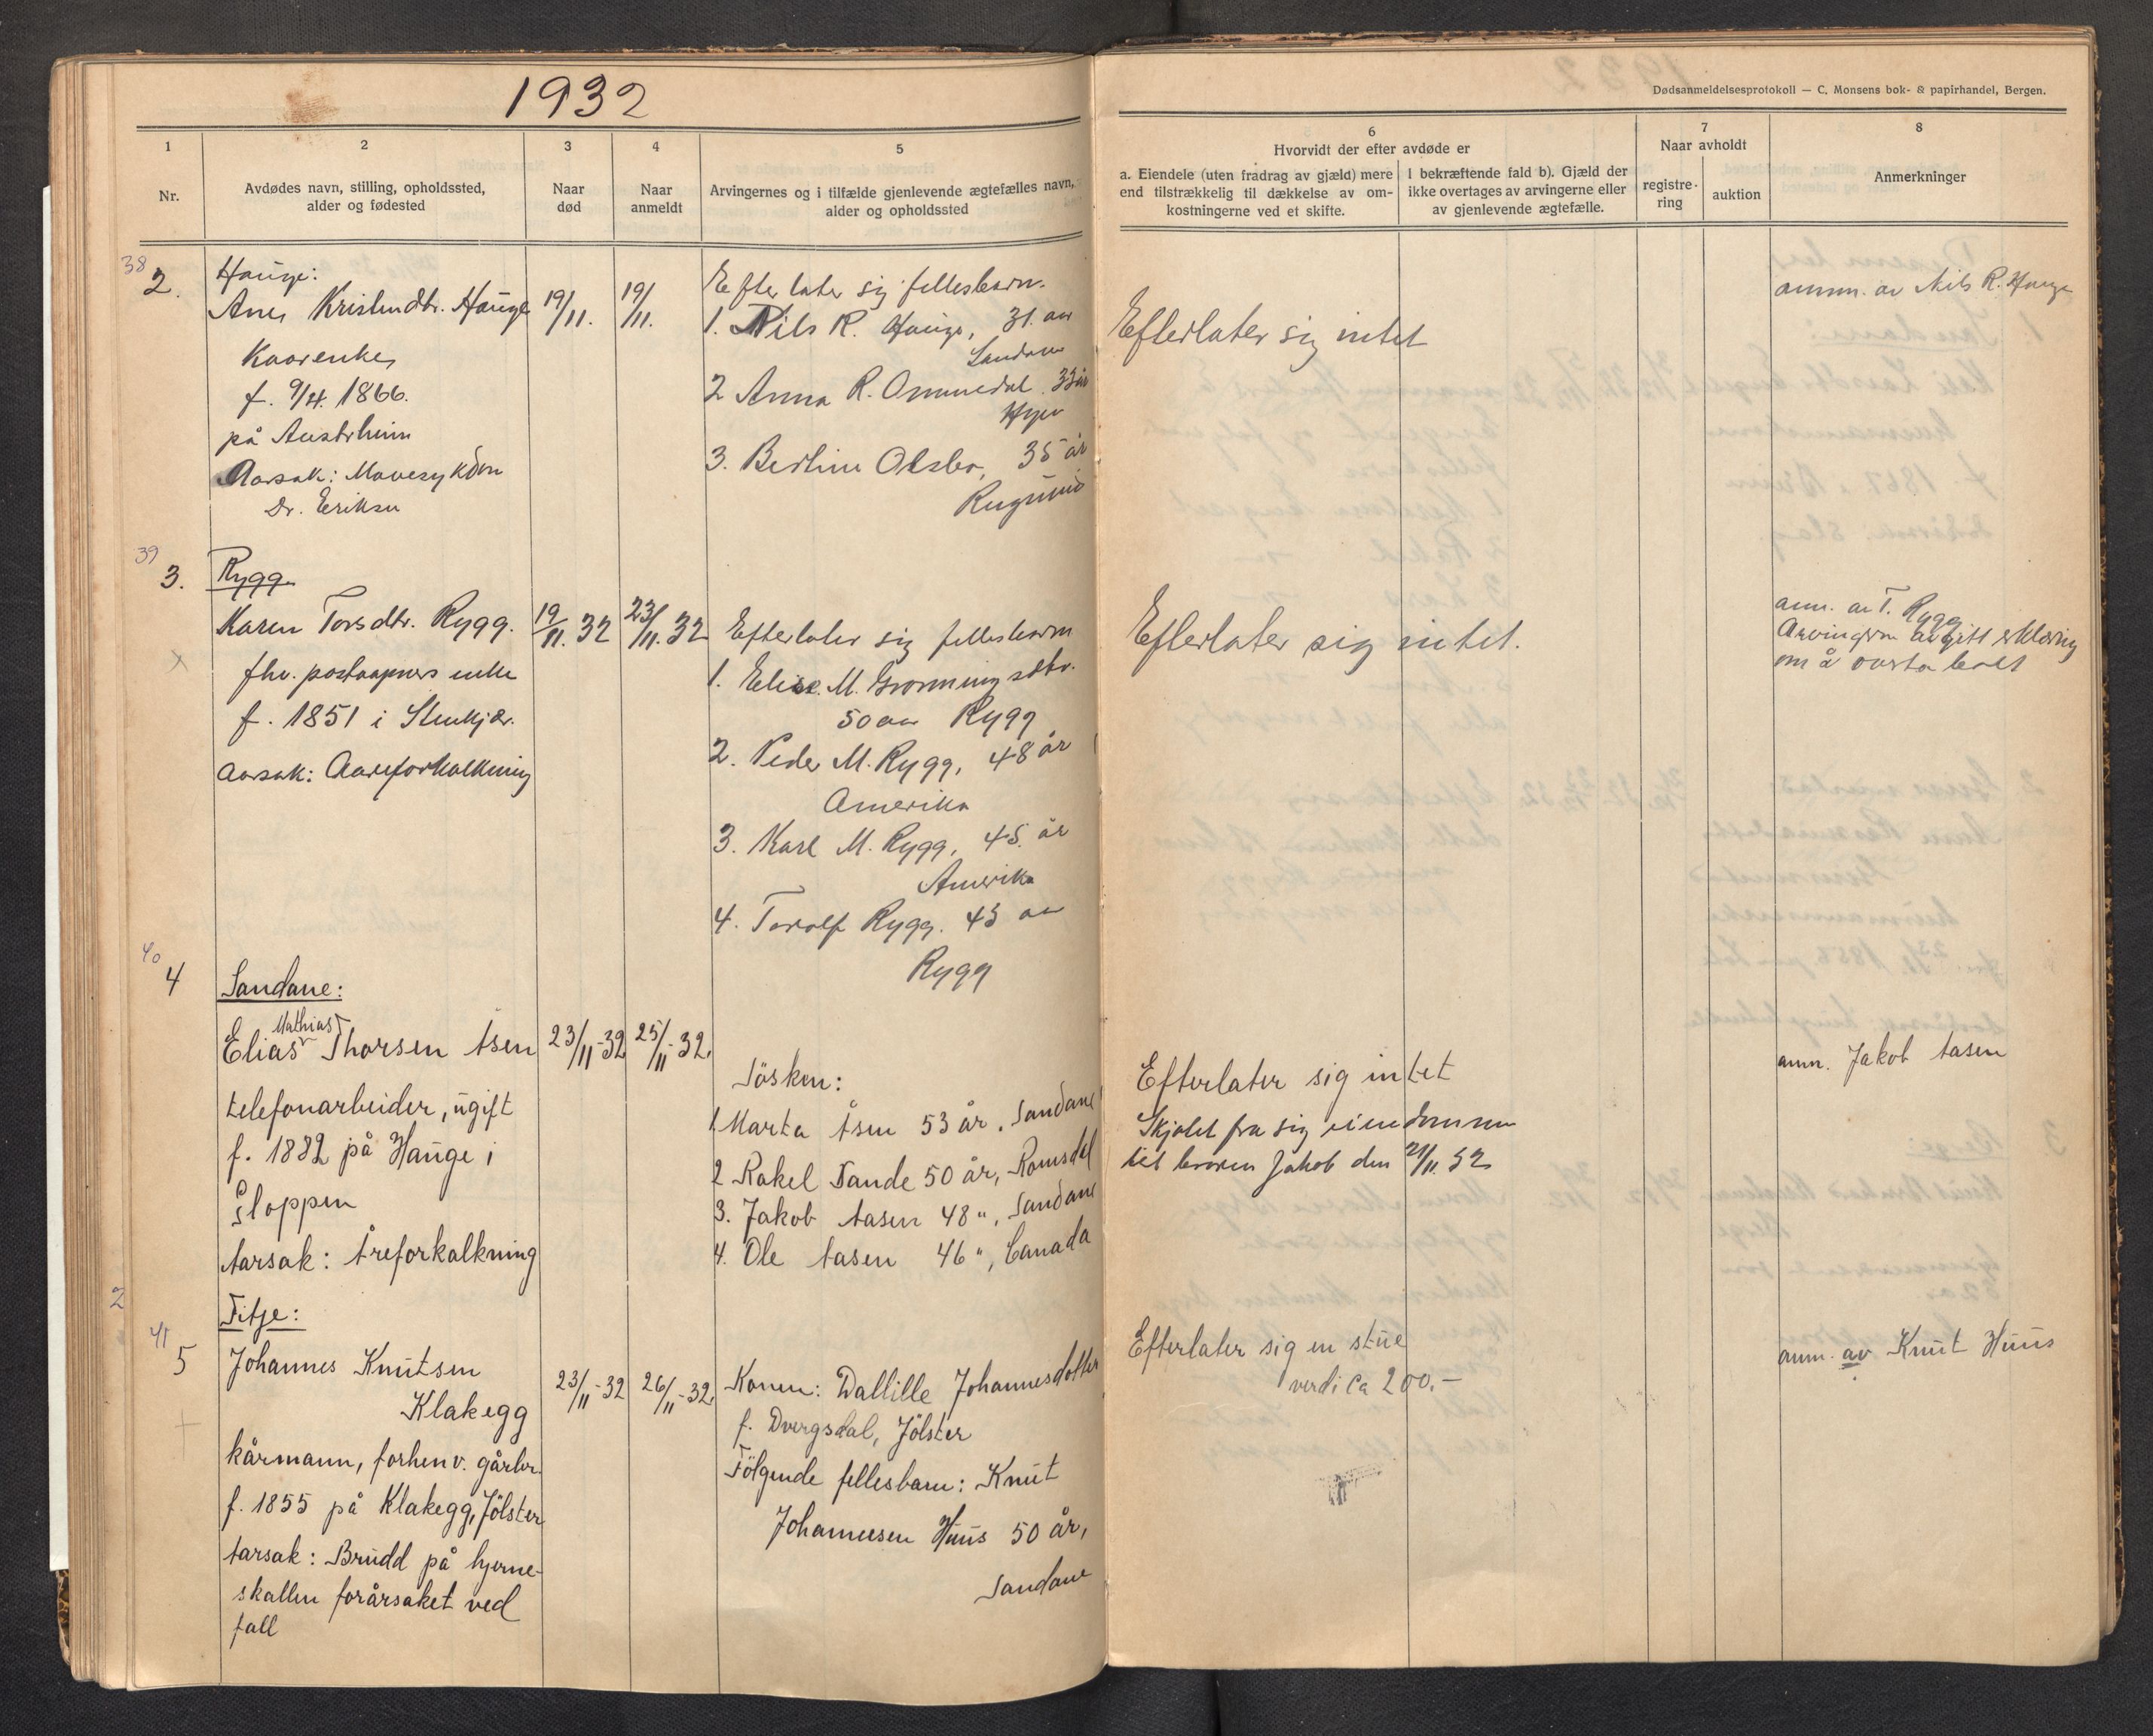 1932
Dødsanmeldelsesprotokoll — C. Monsens bok- & papirhandel, Bergen.
1
Nr.
2
Avdødes navn, stilling, opholdssted,
alder og fødested
3
Naar
død
4
Naar
anmeldt
5
Arvingernes og i tilfælde gjenlevende ægtefælles navn,
alder og opholdssted
6
Hvorvidt der efter avdøde er
a. Eiendele (uten fradrag av gjæld) mere
end tilstrækkelig til dækkelse av om-
kostningerne ved et skifte.
I bekræftende fald b). Gjæld der
ikke overtages av arvingerne eller
av gjenlevende ægtefælle.
7
Naar avholdt
registre-
ring
auktion
8
Anmerkninger
38
2.
Hauge:
Ane Kristendtr. Hauge
Kaarenke
f. 9/4. 1866.
på Austrheim
Aarsak: Mavesykdom
Dr. Eriksen
19/11.
19/11.
Efterlater sig fellesbarn.
1. Nils R. Hauge, 31. aar
Sandane
2 Anna R. Ommedal 33 år
Hyen
3. Bertine 35 år
Rugsund
Efterlater sig intet
anm. av Nils R. Hauge
39
3.
Rygg
Karen Torsdtr. Rygg.
fhv. postaapners enke
f. 1851 i Stenkjær.
Aarsak: Aareforkalkning
19/11. 32
23/11. 32
Efterlater sig fellesbarn
1. Elise M. Grønningsdtr.
50 aar Rygg
2. Peder M. Rygg, 48 år
Amerika
3. Karl M. Rygg, 45. år
Amerika
4. Torolf Rygg. 43 aar
Rygg
Efterlater sig intet.
anm. av T. Rygg
Arvingern avgitt erklæring
om å overta boet
40
4
Sandane:
Mathias
Elias Thorsen Åsen
telefonarbeider, ugift
f. 1882 på Hauge i
Gloppen
Aarsak: Åreforkalkning
23/11-32
25/11-32.
Søsken:
1. Marta Åsen 53 år, Sandane
2 Rakel Sande 50 år, Romsdal
3. Jakob Aasen 48 ", Sandane
4. Ole Aasen 46 ", Canada
Efterlater sig intet
Skjøtet fra sig eiendommen
til broren Jakob den 21/11. 32
anm. Jakob Aasen
2
41
5
Fitje:
Johannes Knutsen
Klakegg
kårmann, forhenv. gårbr.
f. 1855 på Klakegg, Jølster
Aarsak: Brudd på hjerne-
skallen forårsaket ved
fall
23/11-32
26/11-32.
Konen: Dallille Johannesdotter
f. Dvergsdal, Jølster
Følgende fellesbarn: Knut
Johannesen Huus 50 år,
Sandane
Efterlater sig en stue
verdi ca 200.-
anm. av Knut Huus